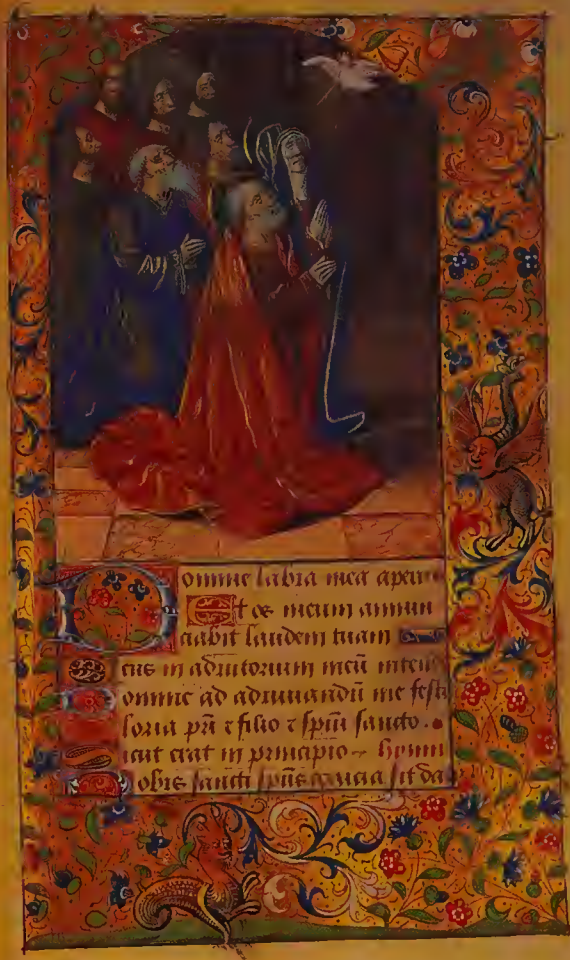 Domine labia mea aperi
Et os meum annun
ciabit laudem tuam
eus in adiutorium meū inten
omine ad adiuvandū me festi
loria pri̅ ⁊ filio ⁊ spu̅i sancto.
icut erat in principio hymn
obis sancti spu̅s gracia sit da